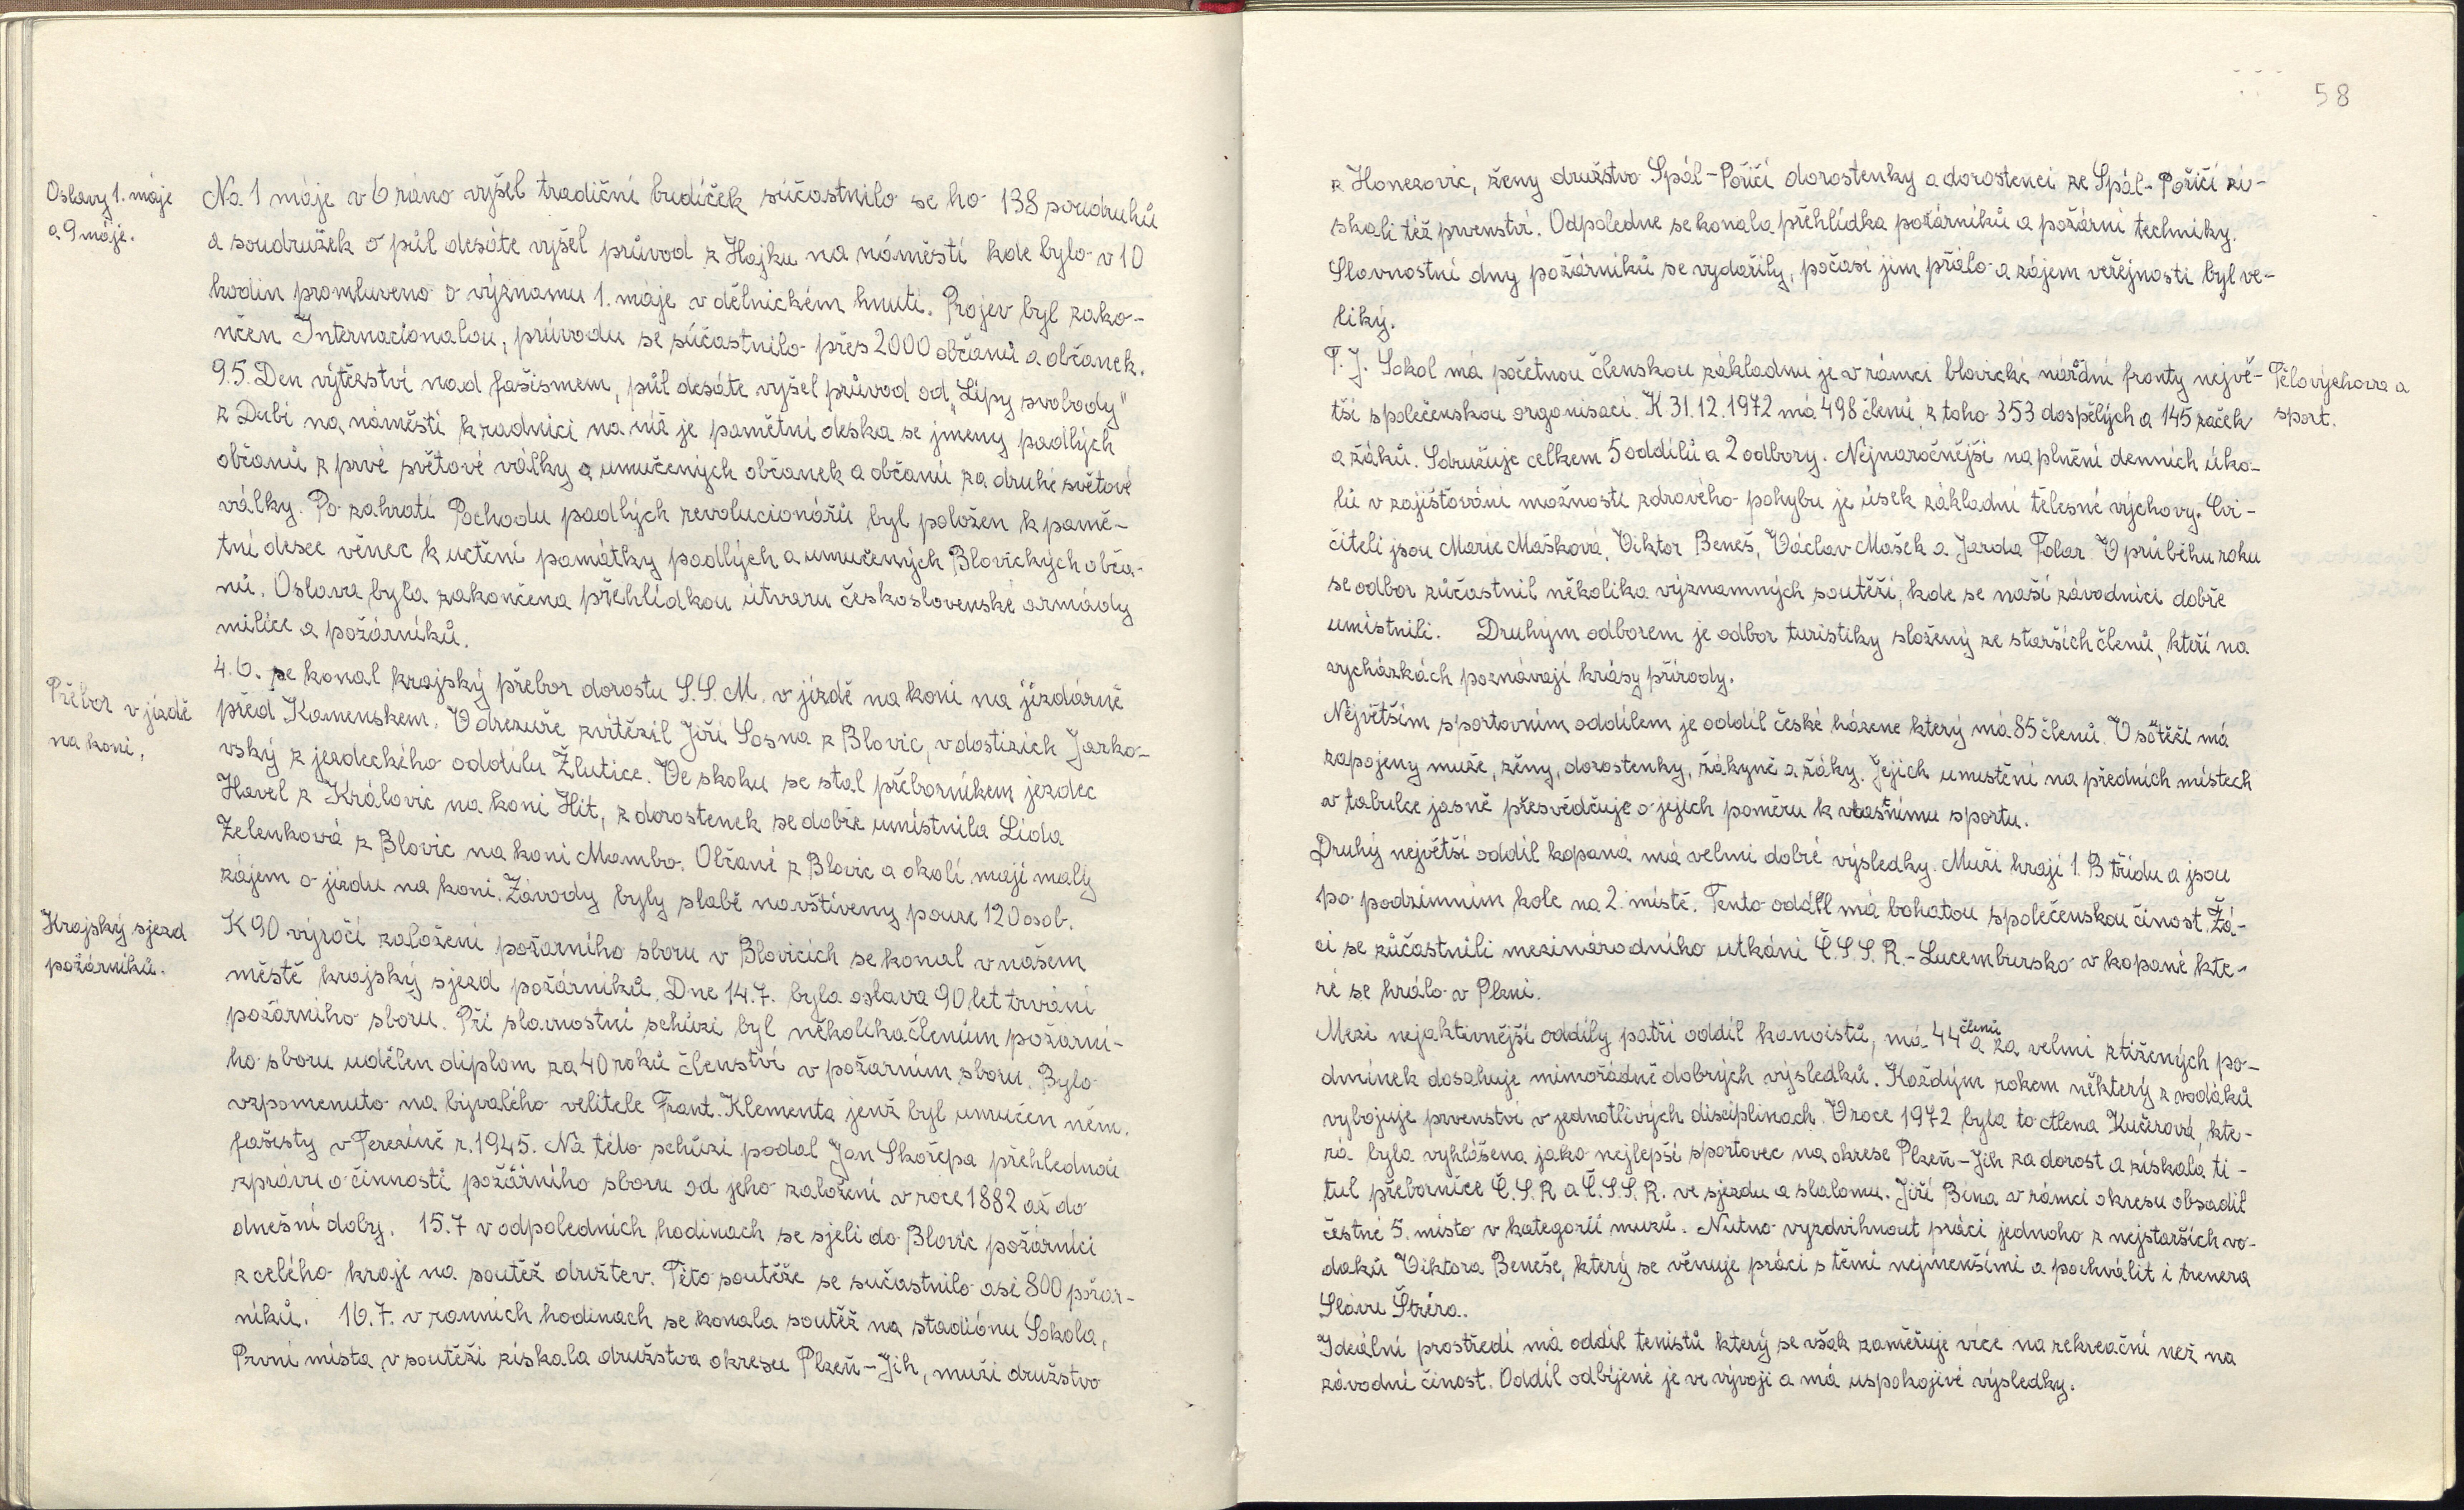 Oslavy 1. máje
a 9 máje.
Na 1 máje v 6 ráno vyšel tradiční budíček súčastnilo se ho 138 soudruhů
a soudružek o půl desáte vyšel průvod z Hájku na náměstí kde bylo v 10
hodin promluveno o významu 1. máje v dělnickém hnutí. Projev byl zako-
nčen Internacionalou, průvodu se súčastnilo přes 2000 občanů a občanek.
9.5. Den výtězství nad fašismem, půl desáte vyšel průvod od „Lípy svobody"
z Dubí na náměstí k radnici na níž je pamětní deska se jmeny padlých
občanů z prvé světové války a umučených občanek a občanů za druhé světové
války. Po zahrátí Pochodu padlých revolucionářů byl položen k pamě-
tní desce věnec k uctění památky padlých a umučených Blovických obča-
nů. Oslava byla zakončena přehlídkou útvaru československé armády
milice a požárníků.
Přebor v jízdě
na koni.
4.6. se konal krajský přebor dorostu S.S.M. v jízdě na koni na jízdárně
před Kamenskem. V drezuře zvítězil Jiří Sosna z Blovic, v dostizích Jarko-
vský z jezdeckého oddílu Žlutice. Ve skoku se stal přeborníkem jezdec
Havel z Královic na koni Hit, z dorostenek se dobře umístnila Lída
Zelenková z Blovic na koni Mambo. Občané z Blovic a okolí mají malý
zájem o jízdu na koni. Závody byly slabě navštíveny pouze 120 osob.
Krajský sjezd
požárníků.
K 90 výročí založení požárního sboru v Blovicích se konal v našem
městě krajský sjezd požárníků. Dne 14.7. byla oslava 90 let trvání
požárního sboru. Při slavnostní schůzi byl několika členům požární-
ho sboru udělen diplom za 40 roků členství v požárním sboru. Bylo
vzpomenuto na bývalého velitele Frant. Klementa jenž byl umučen něm.
fašisty v Terezíně r. 1945. Na této schůzi podal Jan Skořepa přehlednou
zprávu o činnosti požárního sboru od jeho založení v roce 1882 až do
dnešní doby. 15.7 v odpoledních hodinach se sjeli do Blovic požárníci
z celého kraje na soutěž družtev. Této soutěže se sučastnilo asi 800 požár-
níků. 16.7. v ranních hodinach se konala soutěž na stadiónu Sokola,
První místa v soutěži získala družstva okresu Plzeň-Jih, muži družstvo
58
z Honezovic, ženy družstvo Spál-Poříčí dorostenky a dorostenci ze Spál-Poříčí zí-
skali též prvenství. Odpoledne se konala přehlídka požárníků a požární techniky.
Slavnostní dny požárníků se vydařily, počasí jim přálo a zájem veřejnosti byl ve-
liký.
Tělovýchova a
sport.
T.J. Sokol má početnou členskou základnu je v rámci blovické národní fronty nejvě-
tší společenskou organisací. K 31.12.1972 má 498 členů, z toho 353 dospělých a 145 začek
a žáků. Sdružuje celkem 5 oddílů a 2 odbory. Nejnaročnější na plnění denních úko-
lů v zajišťování možností zdravého pohybu je úsek základní tělesné výchovy. Cvi-
čiteli jsou Marie Mašková, Viktor Beneš, Václav Mašek a Jarda Folar. V průběhu roku
se odbor zůčastnil několika významných soutěží, kde se naší závodníci dobře
umístnili. Druhým odborem je odbor turistiky složený ze starších členů, kteří na
vycházkách poznávají krásy přírody.
Největším sportovním oddílem je oddíl české házene který má 85 členů. V sótěži má
zapojeny muže, ženy, dorostenky, žákyně a žáky. Jejich umistění na předních místech
v tabulce jasně přesvědčuje o jejich poměru k vlastnímu sportu.
Druhý největší oddíl kopaná má velmi dobré výsledky. Muži hrají 1. B třídu a jsou
po podzimním kole na 2. místě. Tento oddíl má bohatou společenskou činost. Žá-
ci se zůčastnili mezinárodního utkání Č.S.S.R.-Lucembursko v kopané kte-
ré se hrálo v Plzni.
Mezi nejaktivnější oddíly patří oddíl kanoistů, má 44 členů a za velmi ztížených po-
dmínek dosahuje mimořádně dobrých výsledků. Každým rokem některý z vodáků
vybojuje prvenství v jednotlivých disciplinách. V roce 1972 byla to Alena Kučerová, kte-
rá byla vyhlášena jako nejlepší sportovec na okrese Plzeň-Jih za dorost a získala ti-
tul přebornice Č.S.R. a Č.S.S.R. ve sjezdu a slalomu. Jiří Bína v rámci okresu obsadil
čestné 5. místo v kategorií mužů. Nutno vyzdvihnout práci jednoho z nejstarších vo-
daků Viktora Beneše, který se věnuje práci s těmi nejmenšími a pochválit i trenera
Slávu Štréra.
Ideální prostředí má oddíl tenistů který se však zaměřuje více na rekreační než na
závodní činost. Oddíl odbíjené je ve vývoji a má uspokojivé výsledky.